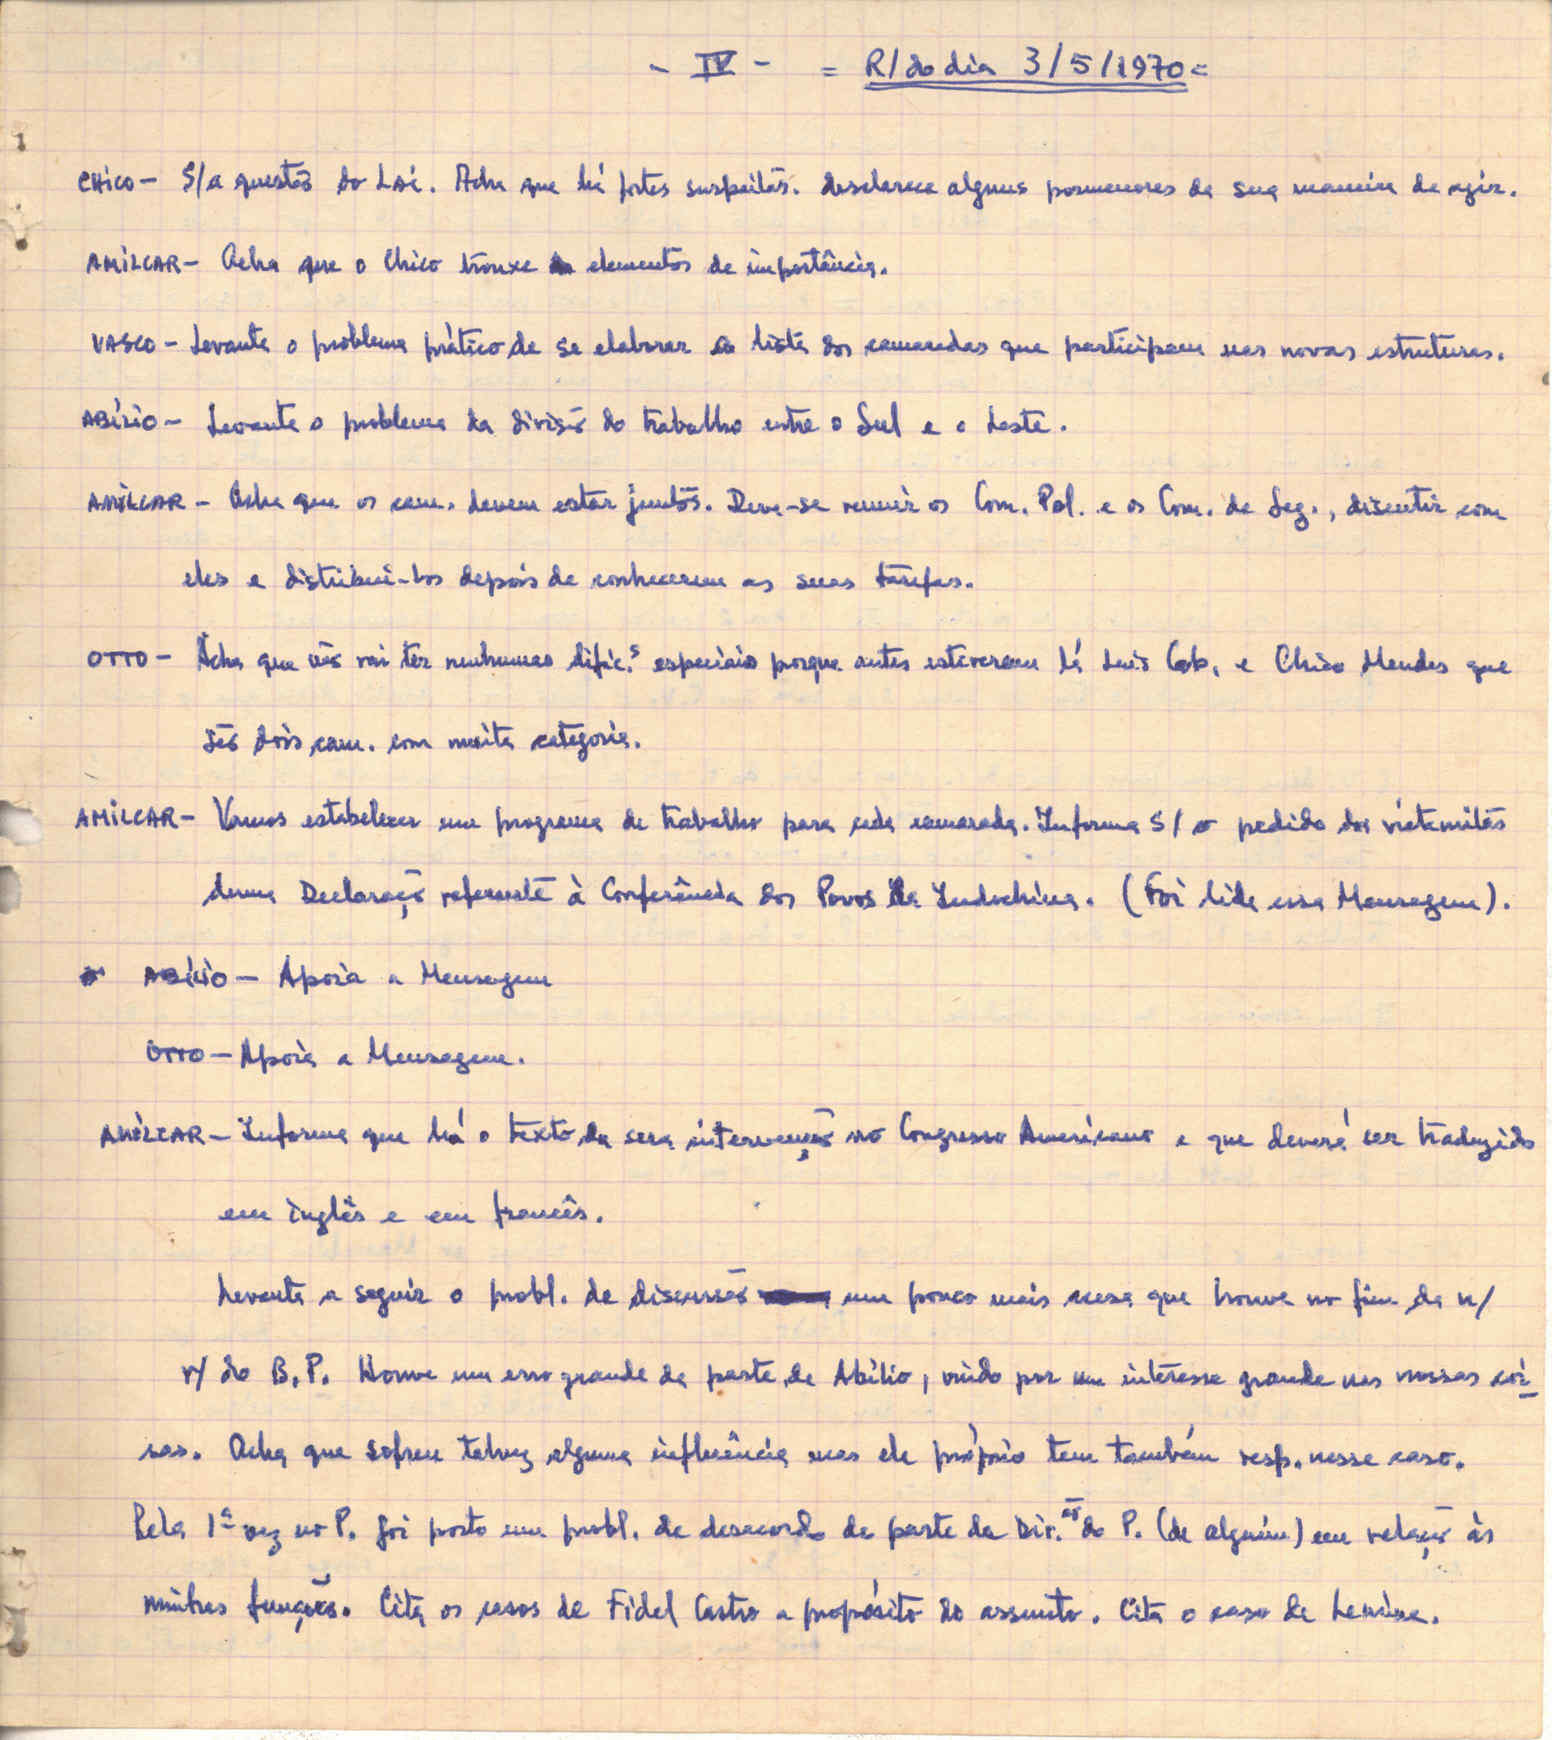 - IV - = R/do dia 3/5/1970 =
CHICO - S/a questão do Laí. Acha que há fortes suspeitas. desclarece alguns pormenores da sua maneira de agir.
AMÍLCAR - Acha que o Chico trouxe elementos de importância.
VASCO - Levanta o problema prático de se elaborar a lista dos camaradas que participam nas novas estruturas.
ABÍLIO - Levanta o problema da divisão do trabalho entre o Sul e o Leste.
AMÍLCAR - Acha que os cam. devem estar juntos. Deve-se reunir os Com. Pol. e os Com. de Seg., discutir com
eles e distribui-los depois de conhecerem as suas tarefas.
OTTO - Acha que não vai ter nenhumas dific.s especiais porque antes estiveram lá Luís Cab. e Chico Mendes que
são dois cam. com muita categoria.
AMÍLCAR - Vamos estabelecer um programa de trabalho para cada camarada. Informa S/ o pedido dos vietamitas
duma Declaração referente à Conferência dos Povos da Indochina. (Foi lida essa Mensagem).
ABÍLIO - Apoia a Mensagem
OTTO - Apoia a Mensagem.
AMÍLCAR - Informa que há o texto da sua intervenção no Congresso Americano e que deverá ser traduzido
em inglês e em francês.
Levanta a seguir o probl. de discussão um pouco mais acesa que houve no fim da n/
r/ do B.P. Houve um erro grande da parte de Abílio, vindo por um interesse grande nas nossas coi-
sas. Acha que sofreu talvez alguma influência mas ele próprio tem também resp. nesse caso.
Pela 1ª vez no P. foi posto um probl. de desacordo da parte da Dir.ão do P. (de alguém) em relação às
minhas funções. Cita os casos de Fidel Castro a propósito do assunto. Cita o caso de Lenine.